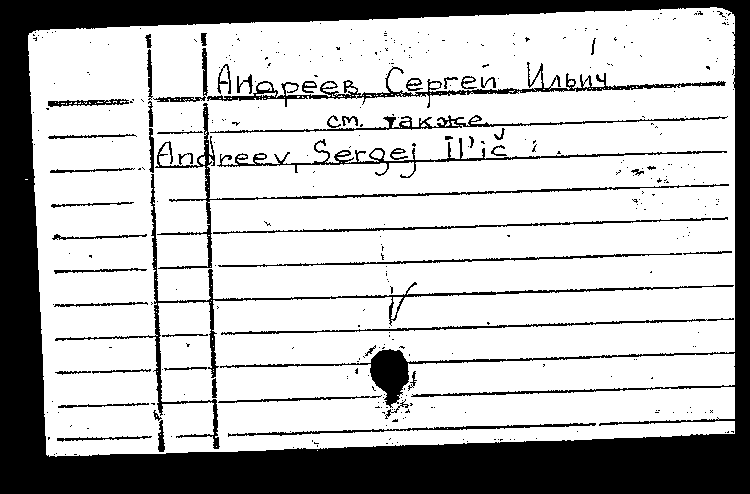 Андреев, Сергей Ильич
см. также
Andreev, Sergej Il'ič